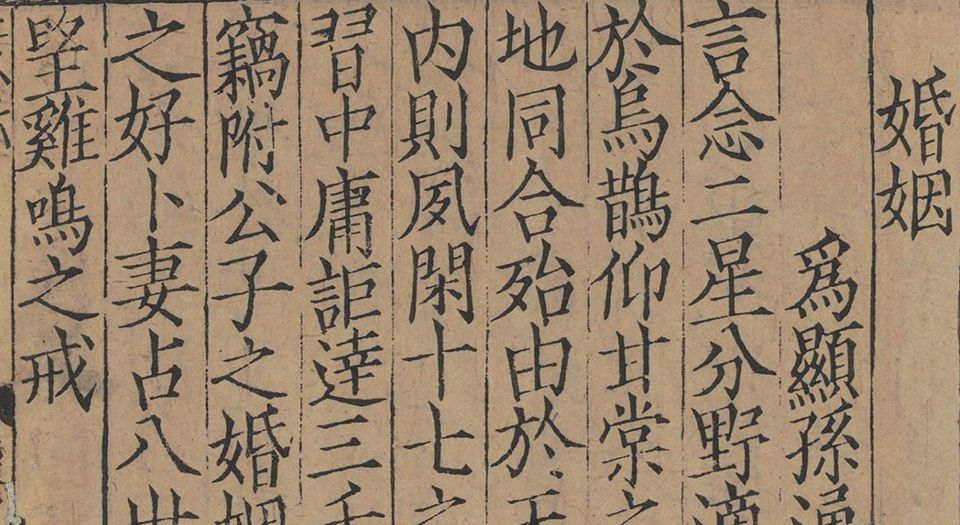 婚姻
爲顯孫
言念二星分野
於烏鵲仰甘棠之
地同合殆由於
內則夙閑十七之
習中庸詎達三千
竊附公子之婚姻
之好卜妻占八世
堅雞鳴之戒